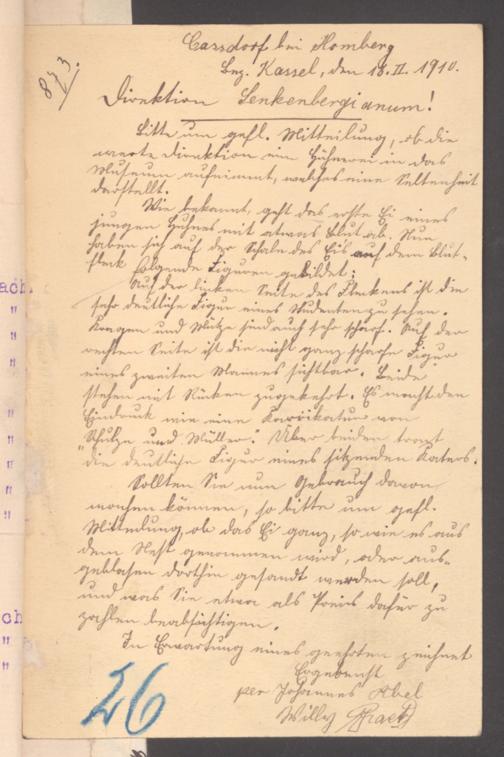 873.
Cassdorf bei Homberg
Bez. Kassel, den 18. II. 1910.
Direktion Senkenbergianum!
Bitte um gefl. Mitteilung, ob die
werte Direktion ein Hühnerei in das
Museum aufnimmt, welches eine Seltenheit
darstellt.
Wie bekannt, geht das erste Ei eines
jungen Huhnes mit etwas Blut ab. Nun
haben sich auf der Schale des Eis auf dem Blut-
fleck folgende Figuren gebildet:
Auf der linken Seite des Fleckens ist die
sehr deutliche Figur eines Studenten zu sehen.
Kragen und Mütze sind auch sehr scharf. Auf der
rechten Seite ist die nicht ganz scharfe Figur
eines zweiten Mannes sichtbar. Beide
stehen mit Rücken zugekehrt. Es macht den
Eindruck wie eine Karrikatur von
"Schulze und Müller. Über beiden tront
die deutliche Figur eines sitzenden Katers.
Sollten Sie nun Gebrauch davon
machen können, so bitte um gefl.
Mitteilung, ob das Ei ganz, so wie es aus
dem Nest genommen wird, oder aus-
geblasen dorthin gesandt werden soll,
und was Sie etwa als Preis dafür zu
zahlen beabsichtigen.
In Erwartung eines geehrten zeichnet
Ergebenst
per Johannes Abel
Willy
26